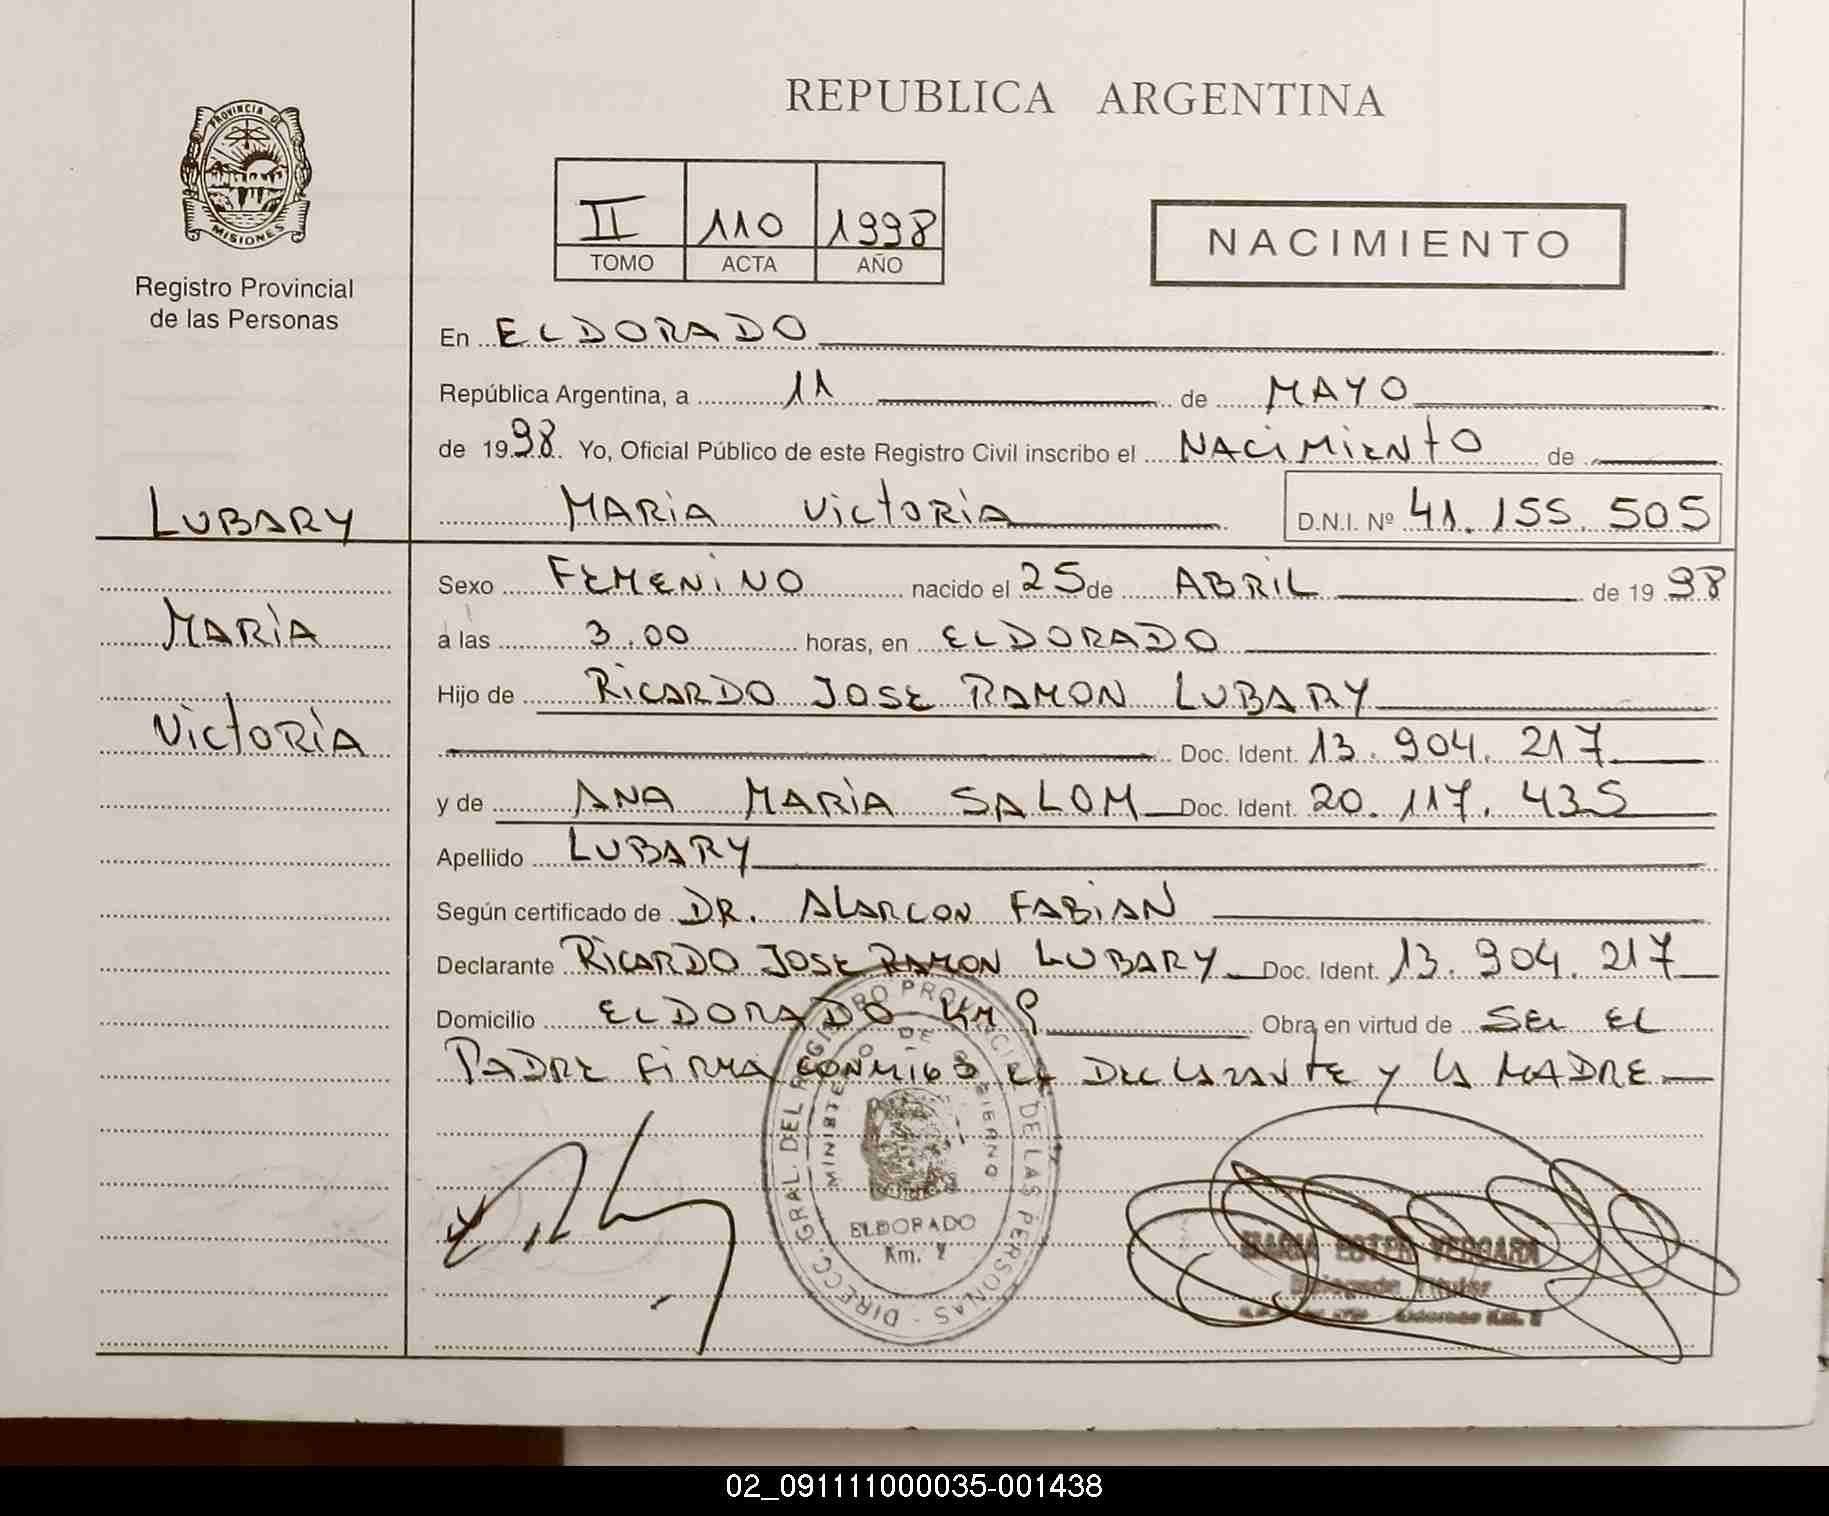 REPUBLICA ARGENTINA
PROVINCIA DE
MISIONES
Registro Provincial
de las Personas
II 110 1998
TOMO ACTA AÑO
NACIMIENTO
En ELDORADO
República Argentina, a 11 de MAYO
de 1998. Yo, Oficial Público de este Registro Civil inscribo el NACIMIENTO de
LUBARY
MARIA VICTORIA D.N.I. Nº 41.155.505
Sexo FEMENINO nacido el 25 de ABRIL de 1998
MARÌA
a las 3.00 horas, en ELDORADO
Hijo de RICARDO JOSE RAMON LUBARY
VICTORÌA
Doc. Ident. 13.904.217
y de ANA MARÌA SALOM Doc. Ident. 20.117.435
Apellido LUBARY
Según certificado de DR. ALARCON FABIAN
Declarante RICARDO JOSE RAMON LUBARY Doc. Ident. 13.904.217
Domicilio ELDORADO KM 9 Obra en virtud de SER EL
PADRE FIRMA CONMIGO EL DECLARANTE Y LA MADRE
DIRECC. GRAL. DEL REGISTRO PROVINCIAL DE LAS PERSONAS
MINISTERIO DE GOBIERNO
ELDORADO
Km.
MARIA ESTER VERGARA
Delegada Titular
02_091111000035-001438